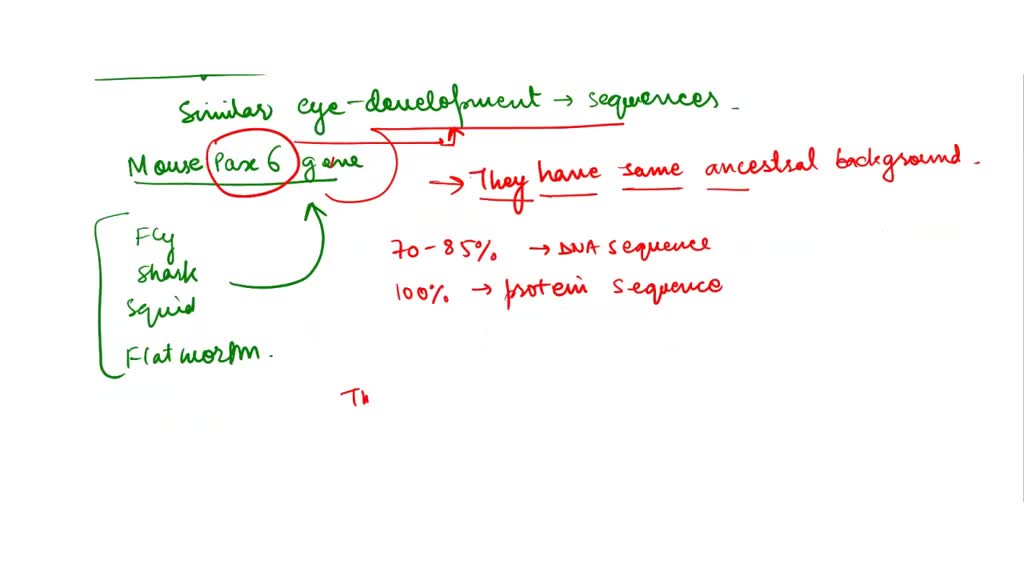 Similar eye-development → sequences.
Mouse Pax 6 gene
→ They have same ancestral background.
Fly
Shark
Squid
Flatworm.
70-85% → DNA sequence
100% → protein sequence
Th